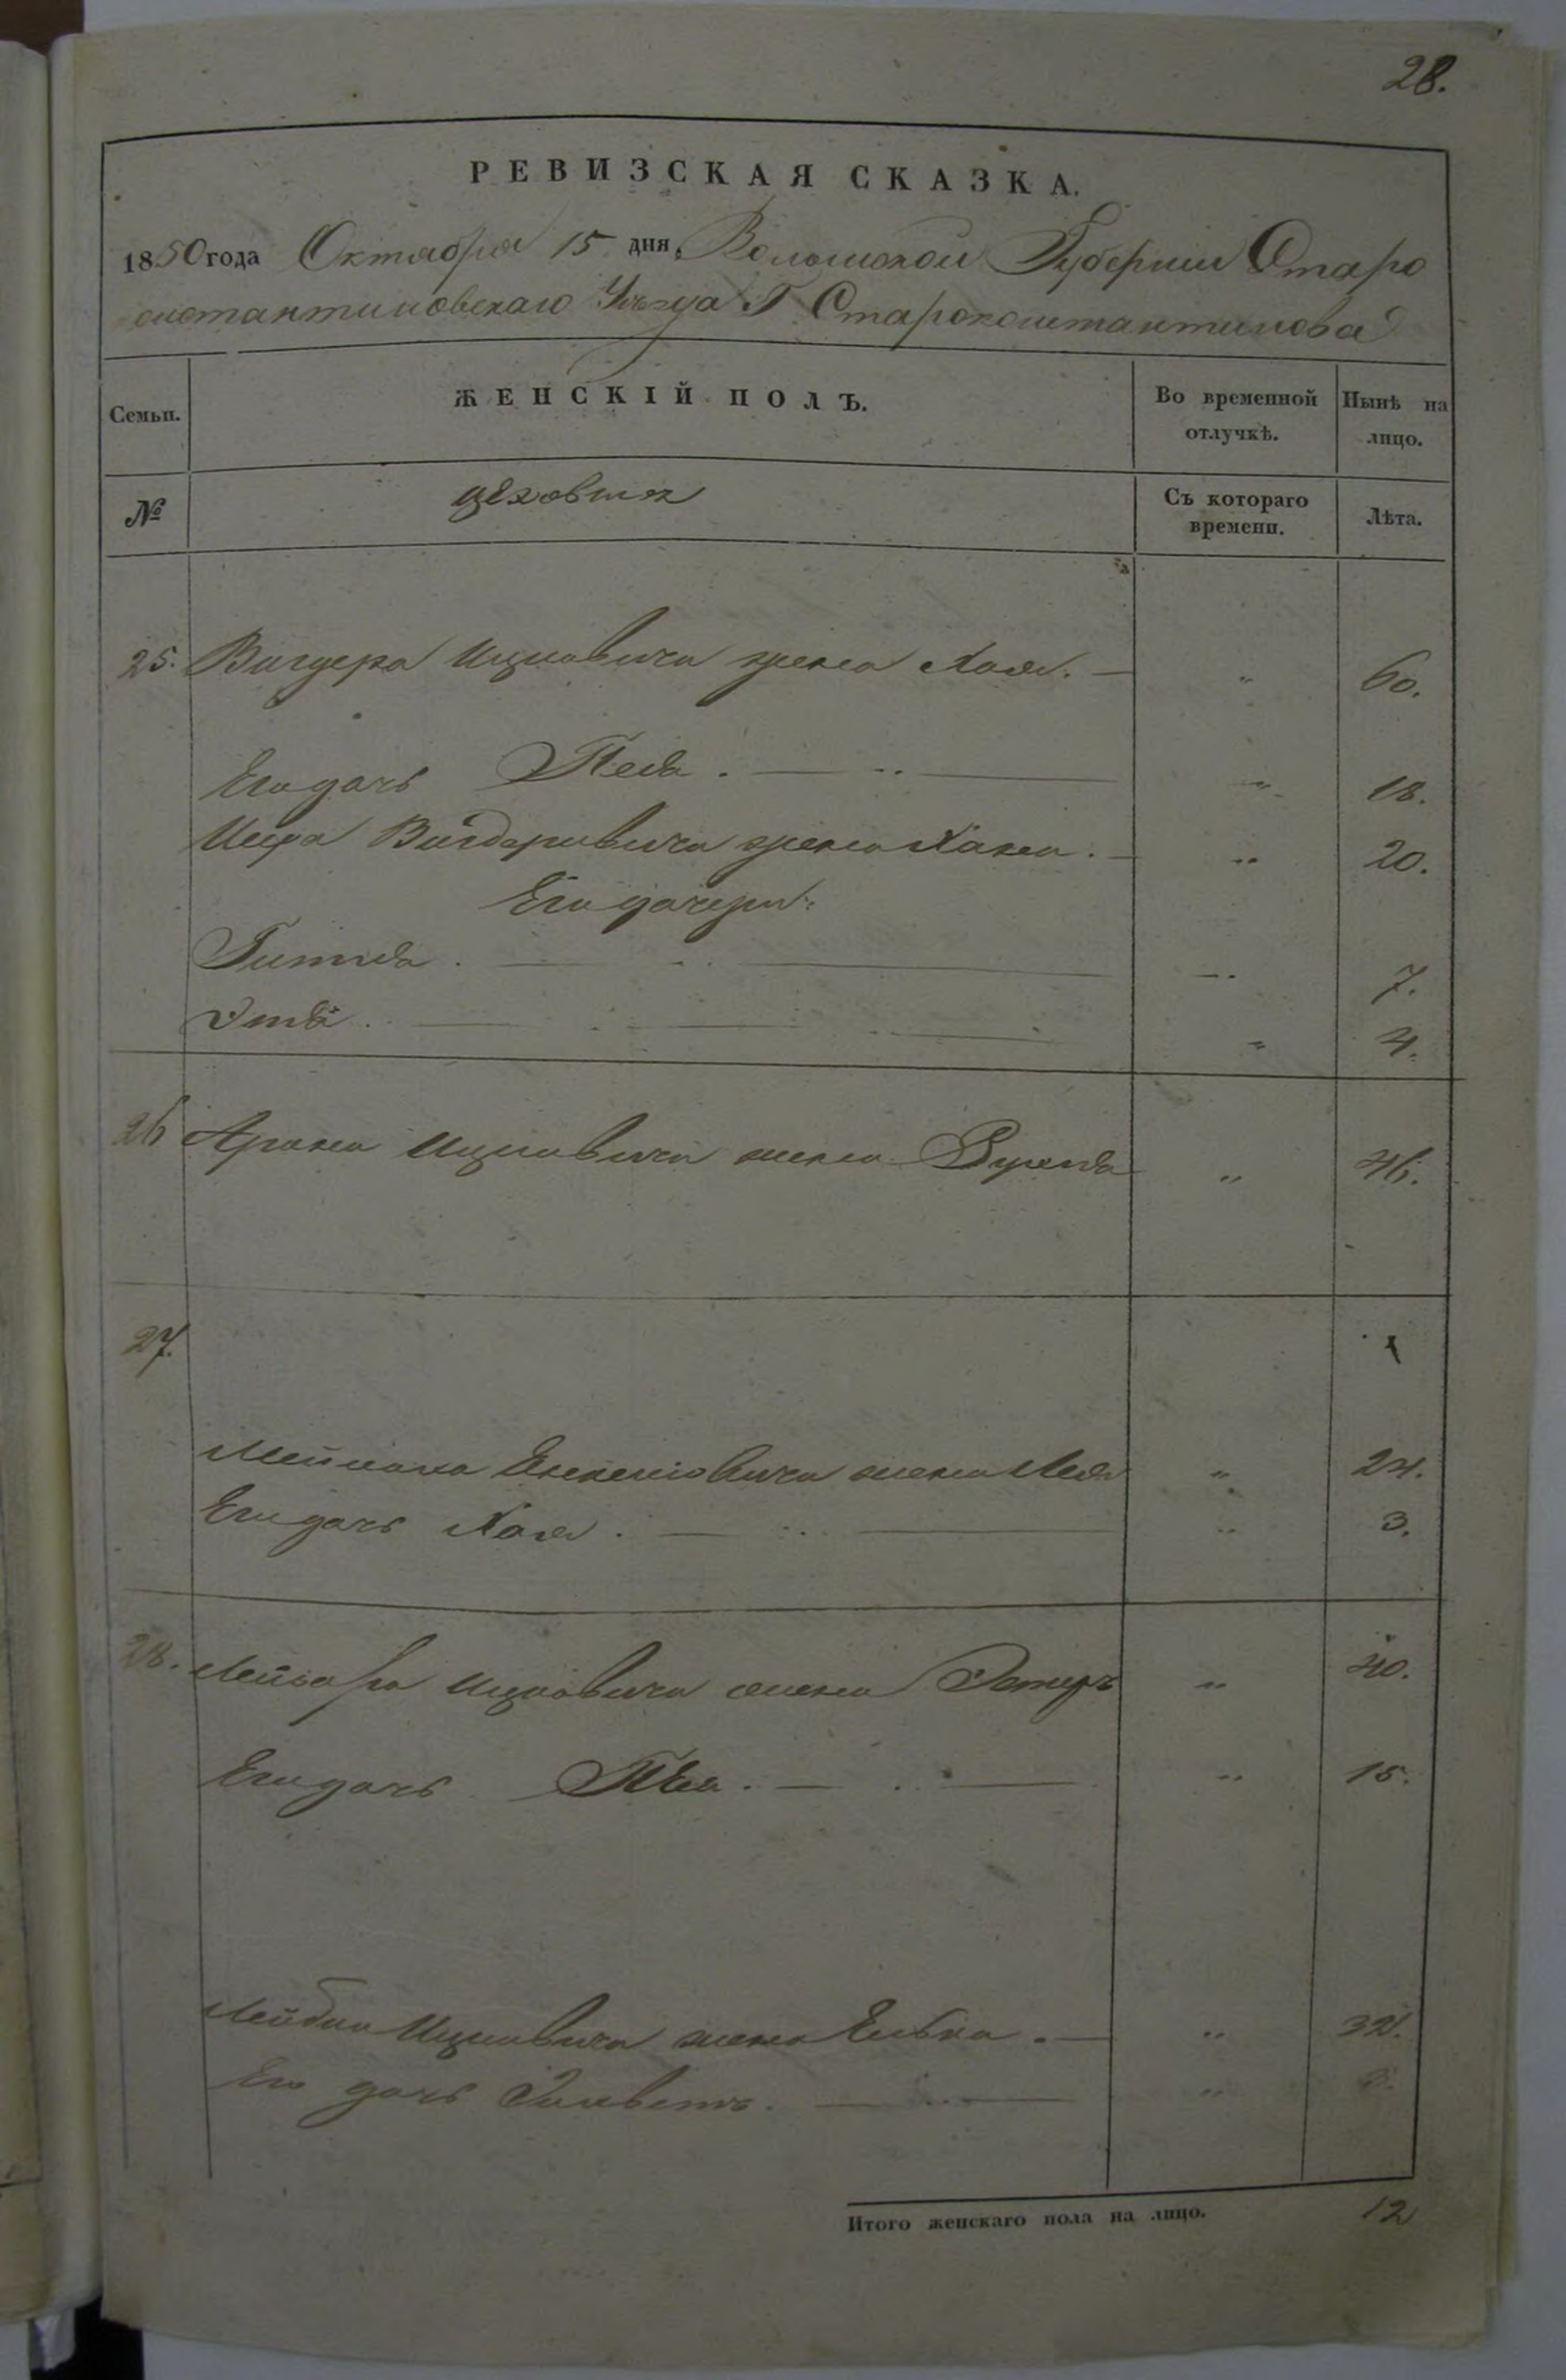 28.
РЕВИЗСКАЯ СКАЗКА.
1850 года Октября 15 дня, Волынской Губернии Старо
константиновскаго Уѣзда Г Староконстантинова
Семьи.
ЖЕНСКІЙ ПОЛЪ.
Во временной отлучкѣ.
Нынѣ на лицо.
№
цеховыя
Съ котораго времени.
Лѣта.
25. Вигдера Ицковича жена Хая. — „ 60.
Его дочь Песя. — „ 18.
Вигдеровича жена Хана. — „ 20.
Его дочери:
Гитля. — „ 7.
Этля. — „ 4.
26 Арона Ицковича жена „ 46.
27.
жена Лея „ 24.
Его дочь Хая. — „ 3.
28. Ицковича жена Эстеръ „ 40.
Его дочь — „ 15.
Лейбы Ицковича жена Елька. — „ 32.
Его дочь — „
Итого женскаго пола на лицо. 12